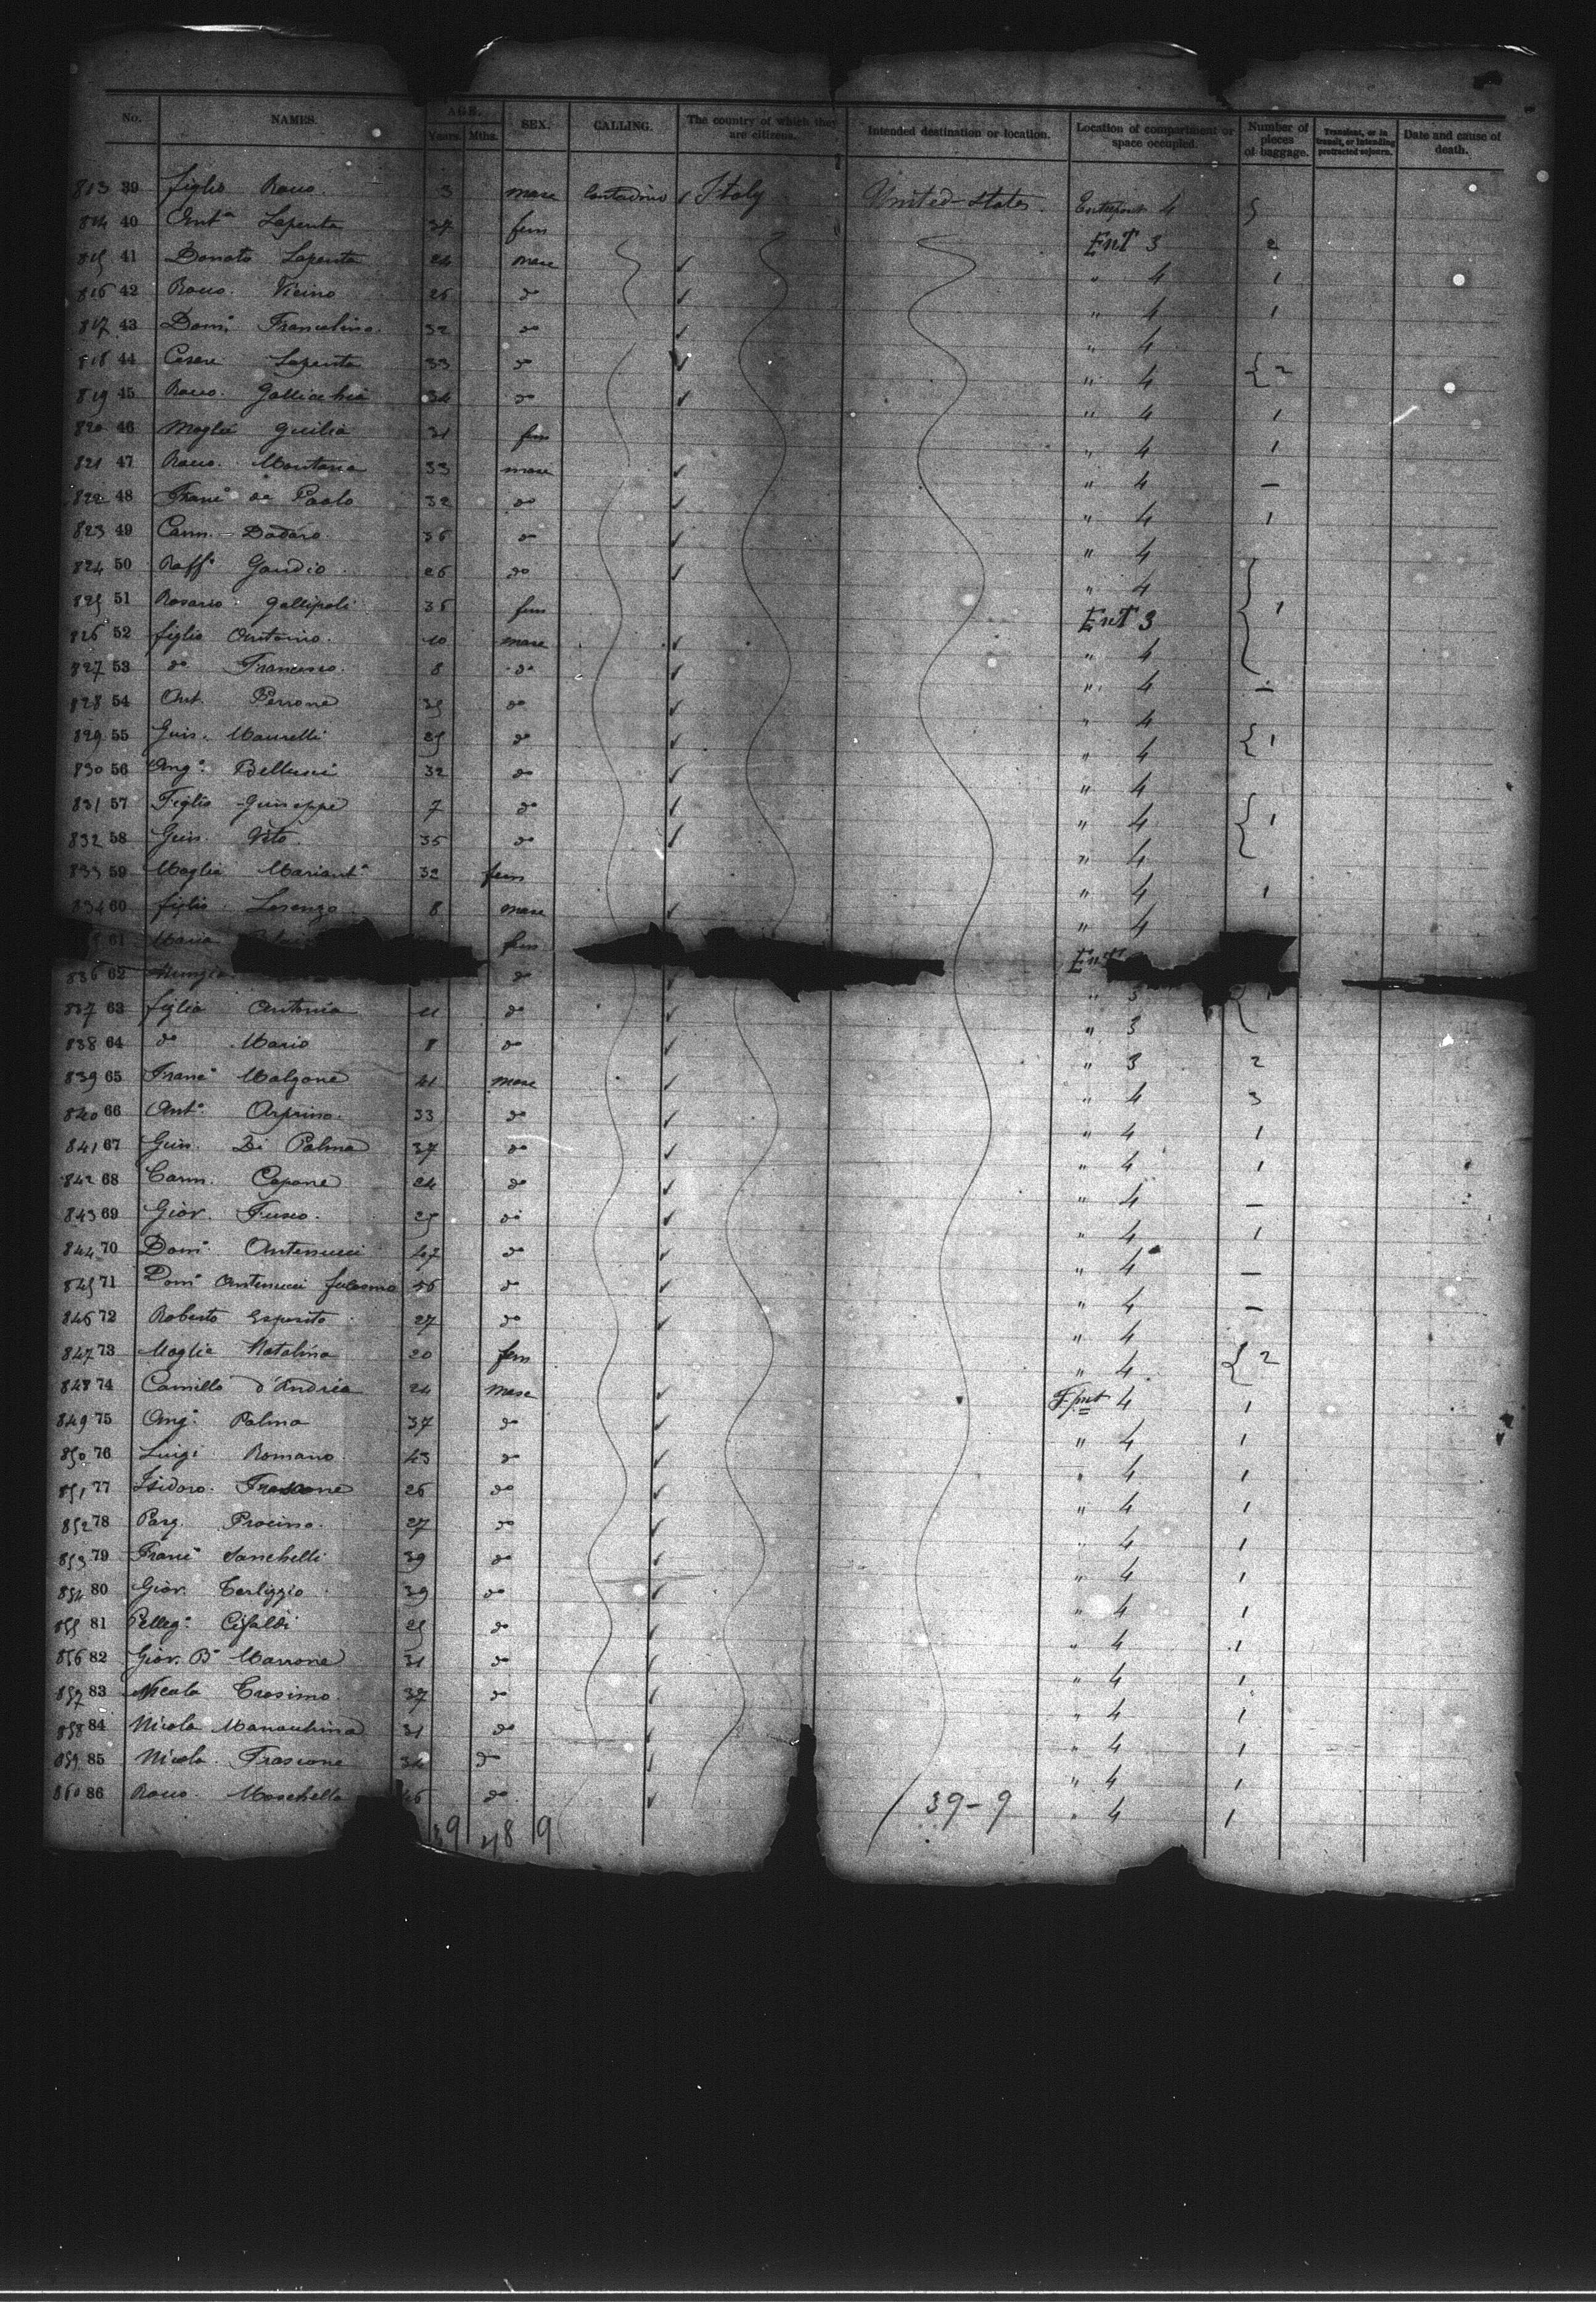 No. NAMES. AGE. Years. Mths. SEX. CALLING. The country of which they are citizens. Intended destination or location. Location of compartment or space occupied. Number of pieces of baggage. Transient, or in transit, or intending protracted sojourn. Date and cause of death.
813 39 figlio Rocco. 3 masc Contadino Italy United-States. Entrepont 4
814 40 Ant.a Lapenta 37 fem Ent 3 2
815 41 Donato Lapenta 24 masc " 4 1
816 42 Rocco. Vicino 26 do " 4 1
817 43 Dom. 32 do " 4
818 44 Cesare Lapenta 33 do " 4 2
819 45 Rocco. Gallicchio 34 do " 4 1
820 46 Moglie Giulia 31 fem " 4 1
821 47 Rocco. Montana 33 masc " 4 —
822 48 Franc.o de Paolo 32 do " 4 1
823 49 Carm. Dadaro 36 do " 4
824 50 Raff.e Gaudio 26 do " 4
825 51 Rosario Gallipoli 35 fem Ent 3 1
826 52 figlio Antonio. 10 masc " 4
827 53 do Francesco. 8 do " 4 —
828 54 Ant. Perrone 35 do " 4
829 55 Gius. Maurelli 25 do " 4 1
830 56 Ang.o Bellusci 32 do " 4
831 57 Figlio Giuseppe 7 do " 4 1
832 58 Gius. Vito. 35 do " 4
833 59 Moglie Mariant.a 32 fem " 4 1
834 60 figlio Lorenzo 8 masc " 4
61 Maria fem Ent
836 62 Nunzia do " 3 1
837 63 figlia Antonia 11 do " 3
838 64 do Maria 8 do " 3 2
839 65 Franc.o Malzone 41 masc " 4 3
840 66 Ant.o Arprino. 33 do " 4 1
841 67 Gius. Di Palma 37 do " 4 1
842 68 Carm. Capone 24 do " 4 —
843 69 Giov. Fusco. 25 do " 4 1
844 70 Dom.o Antenucci 47 do " 4 —
845 71 Dom.o Antenucci 56 do " 4 —
846 72 Roberto Esposito 27 do " 4
847 73 Moglie Natalina 20 fem " 4 2
848 74 Camillo d'Andrea 24 masc 4 1
849 75 Ang.o Palma 37 do " 4 1
850 76 Luigi Romano 43 do " 4 1
851 77 Isidoro. Frascone 26 do " 4 1
852 78 Pasq. Procino. 27 do " 4 1
853 79 Franc.o Sanchelli 39 do " 4 1
854 80 Giov. Terlizzio 39 do " 4 1
855 81 Pelleg.o Cifaldi 25 do " 4 1
856 82 Giov. B.a Marrone 31 do " 4 1
857 83 Nicola Trosimo. 37 do " 4 1
858 84 Nicola 31 do " 4 1
859 85 Nicola. Frascione 34 do " 4 1
860 86 Rocco. Moschella 46 do " 4 1
39 48 9 39-9